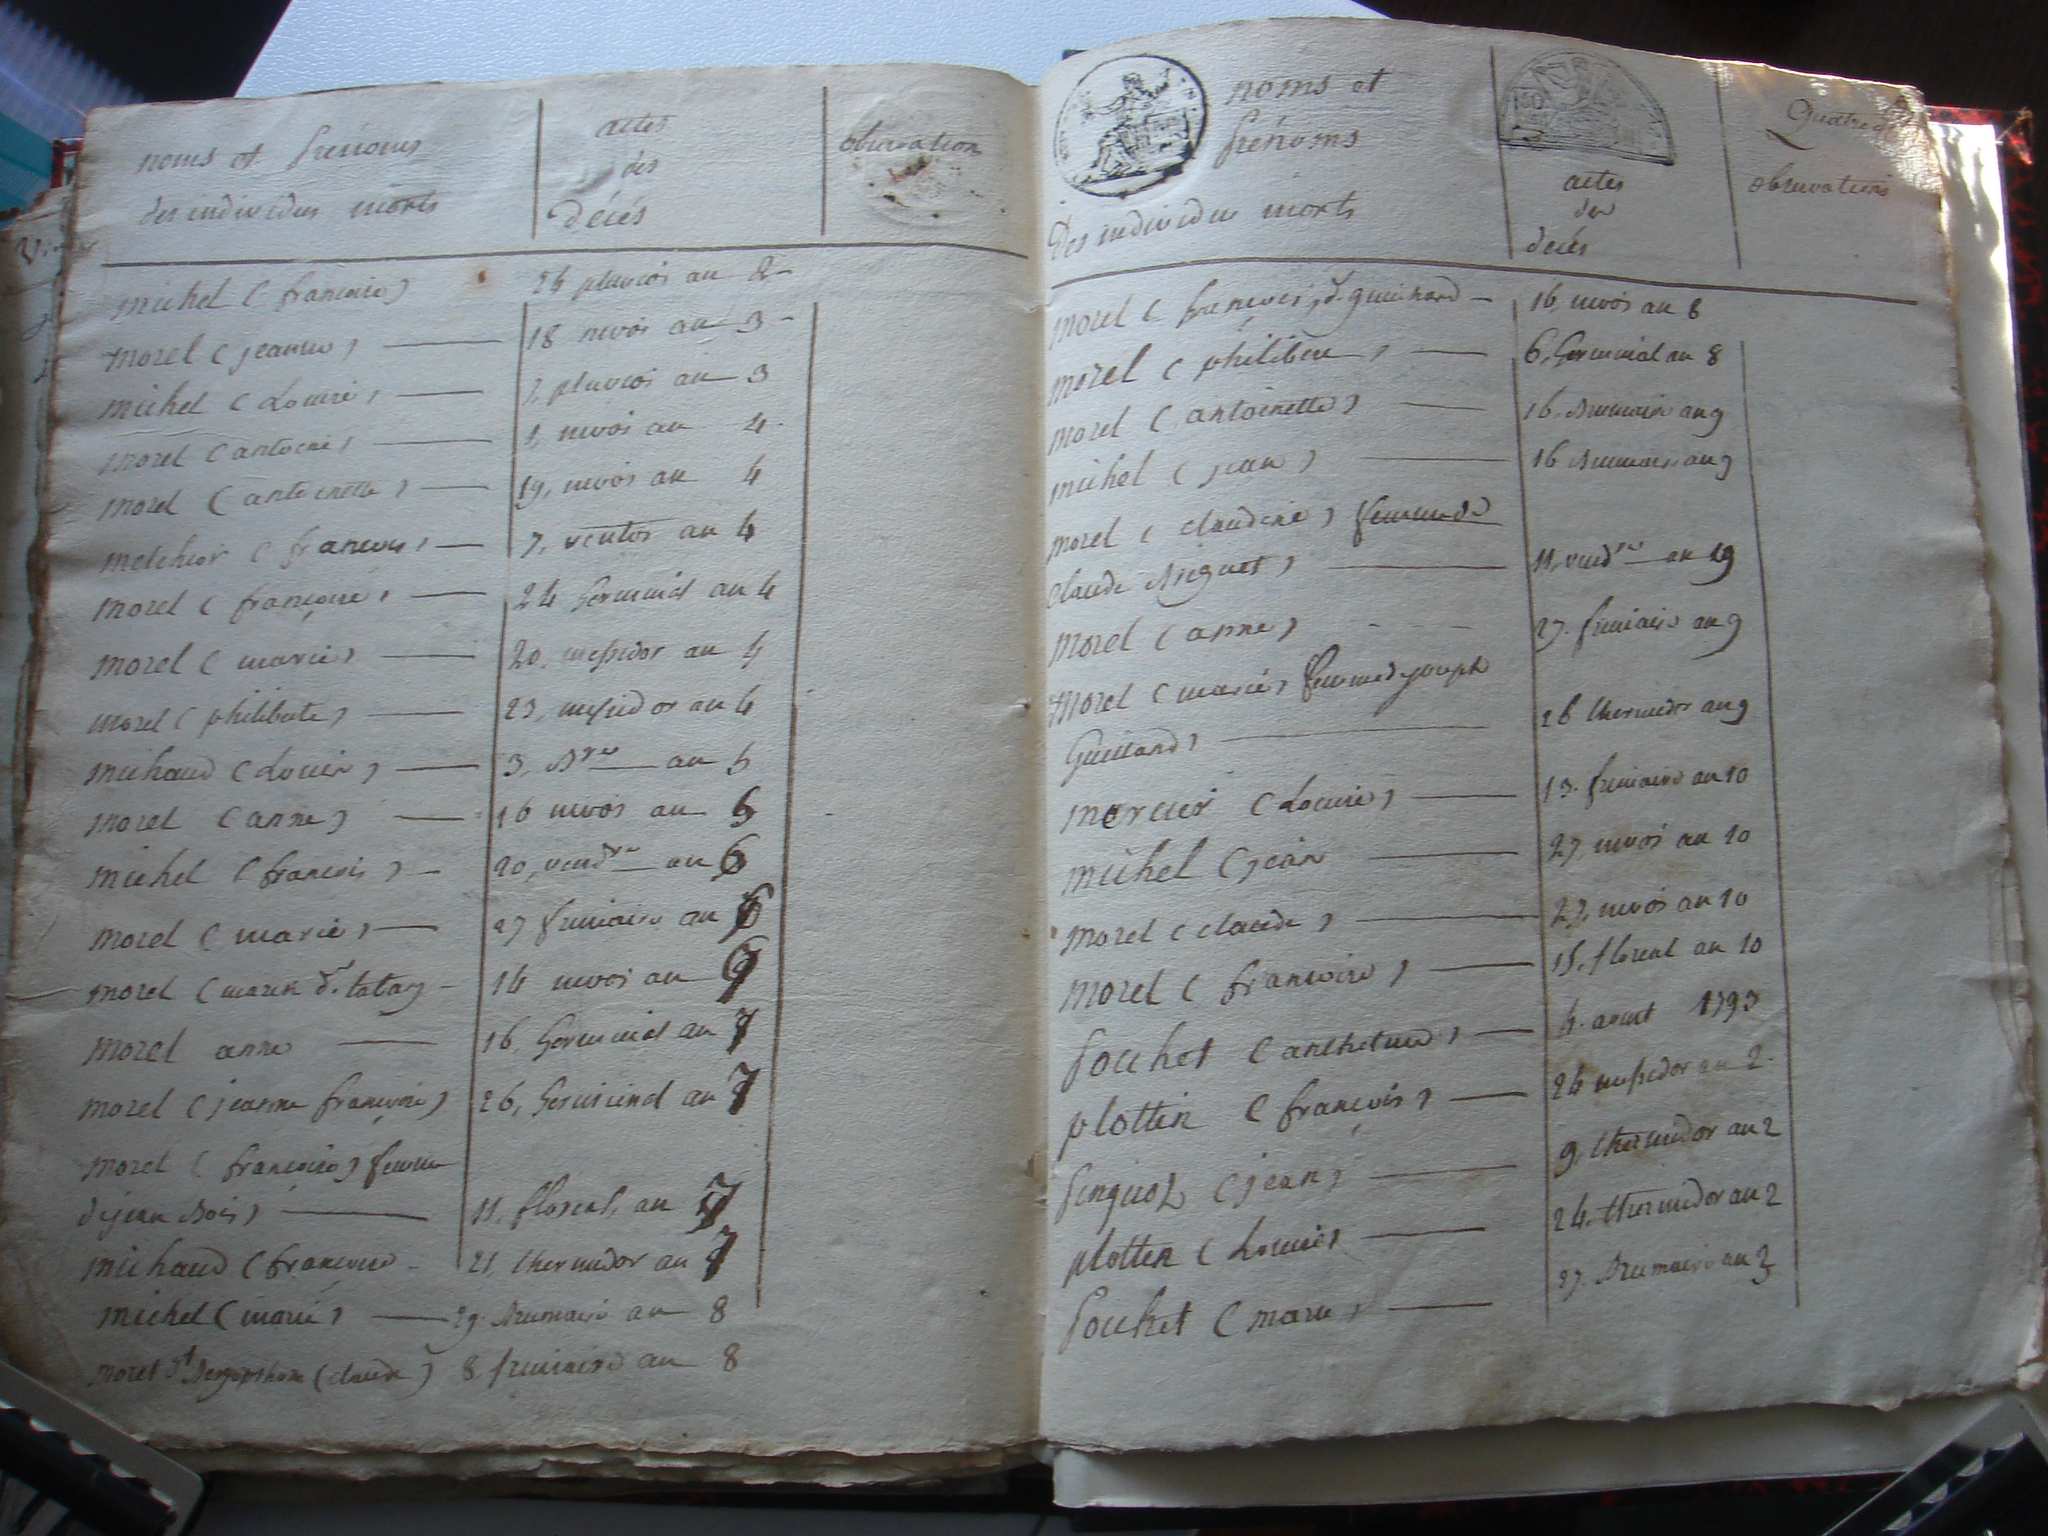 noms et prénoms
des individus morts
actes
des
décés
observation
michel (francoise) 24 pluvios an 2
morel (jeanne) 18 nivos an 3
michel (Louise) 7, pluvios an 3
morel (antoine) 1, nivos an 4
morel (antoinette) 19, nivos an 4
melchior (francois) 7, ventos an 4
morel (françoise) 24 Germinal an 4
morel (marie) 20, messidor an 4
morel (philiberte) 23, messidor an 4
michaud (Louise) 3, Bre an 5
morel (anne) 16 nivos an 5
michel (francois) 20, vendre an 6
morel (marie) 27 frimaire an 6
morel (marie dt. 14 nivos an
morel anne 16, Germinal an 7
morel (jeanne françoise) 26, Germinal an 7
morel (françoise) femme
de jean Bois) 11, floreal, an 7
michaud (francoise 21, thermidor an 7
michel (marie) 29. Brumaire an 8
morel dt (claude) 8 frimaire an 8
noms et
prénoms
Des individus morts
actes
des
décés
Quatre
observations
morel (francois, dt. guichard 16, nivos an 8
morel (philiberte) 6, Germinal an 8
morel (antoinette) 16, Brumaire an 9
michel (jean) 16 Brumaire an 9
morel (claudine) femme de
claude Briguet) 11, vendre an 9
morel (anne) 27. frimaire an 9
morel (marie) femme de joseph
Guillard) 26 thermidor an 9
mercier (Louise) 13. frimaire an 10
michel (jean 27, nivos an 10
morel (claude) 27, nivos an 10
morel (francoise) 15, floreal an 10
pochet (anthelme) 4. aout 1793
plottin (françois) 24 messidor an 2.
pinquoz (jean) 9, thermidor an 2
plottin (Louise) 24, thermidor an 2
pochet (marie) 27. Brumaire an 3